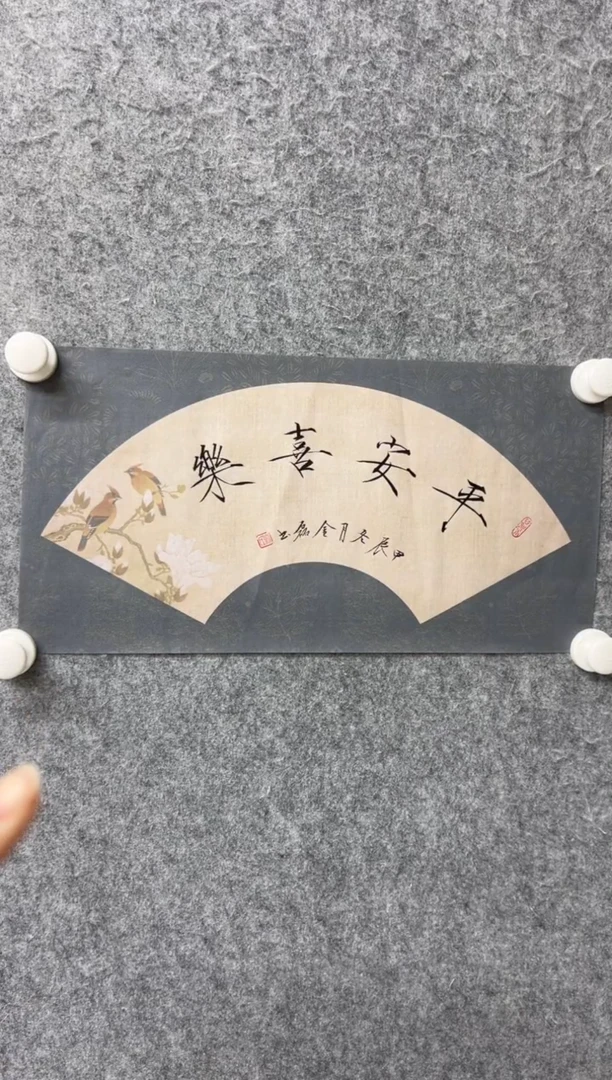 平安喜樂
甲辰冬月金磊书